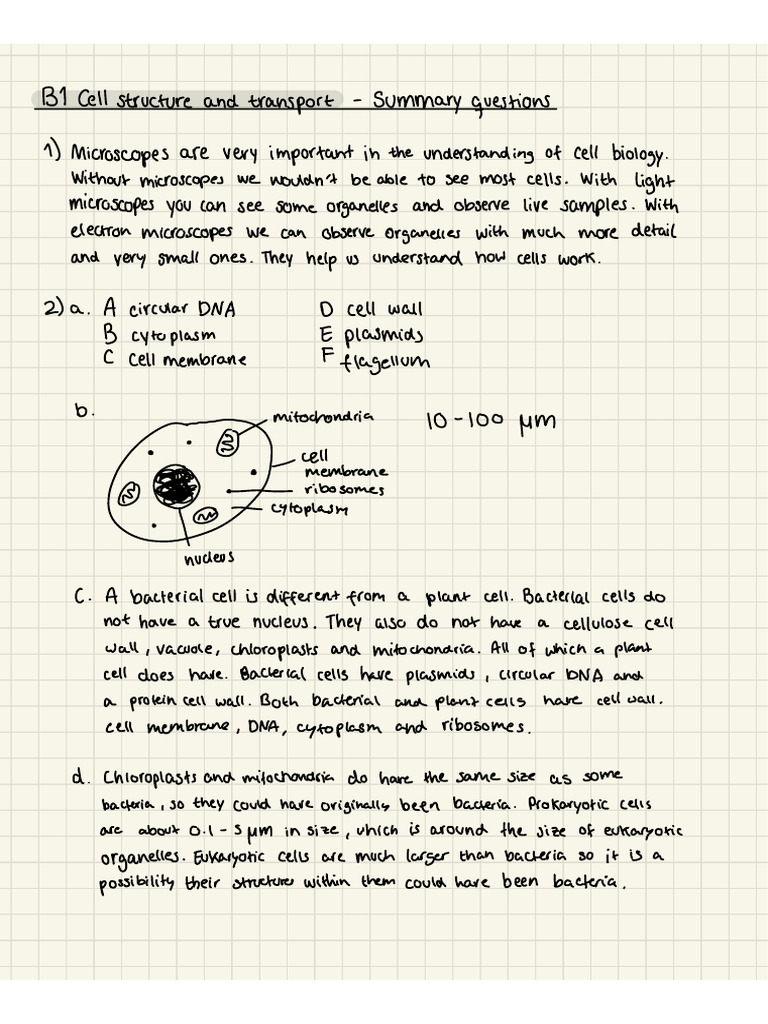 B1 Cell structure and transport - Summary questions
1) Microscopes are very important in the understanding of cell biology.
Without microscopes we wouldn't be able to see most cells. With light
microscopes you can see some organelles and observe live samples. With
electron microscopes we can observe organelles with much more detail
and very small ones. They help us understand how cells work.
2) a. A circular DNA D cell wall
B cytoplasm E plasmids
C cell membrane F flagellum
b.
mitochondria 10-100 μm
cell
membrane
ribosomes
cytoplasm
nucleus
C. A bacterial cell is different from a plant cell. Bacterial cells do
not have a true nucleus. They also do not have a cellulose cell
wall, vacuole, chloroplasts and mitochondria. All of which a plant
cell does have. Bacterial cells have plasmids, circular DNA and
a protein cell wall. Both bacterial and plant cells have cell wall.
cell membrane, DNA, cytoplasm and ribosomes.
d. Chloroplasts and mitochondria do have the same size as some
bacteria, so they could have originally been bacteria. Prokaryotic cells
are about 0.1-5 μm in size, which is around the size of eukaryotic
organelles. Eukaryotic cells are much larger than bacteria so it is a
possibility their structure within them could have been bacteria.